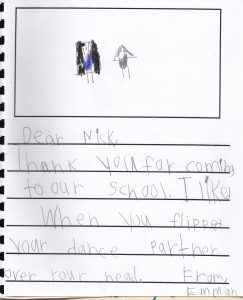 Dear Nick,
Thank you for coming
to our school. I like
When you flipped
your dance partner
over your head. From,
Emman